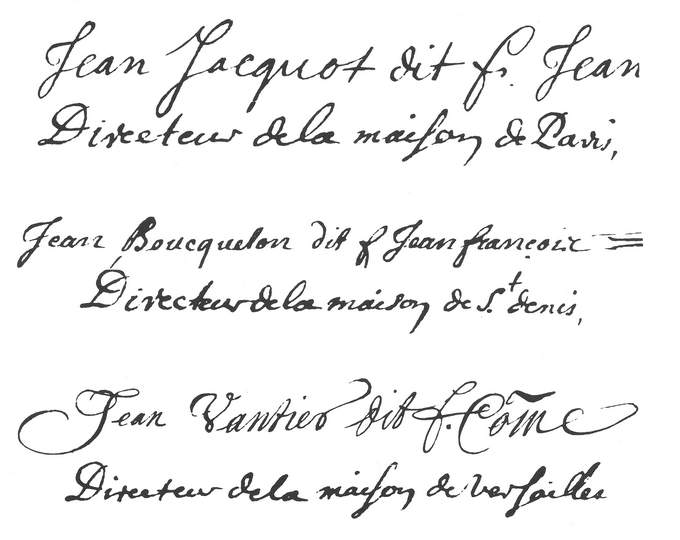 Jean Jacquot dit f. Jean
Directeur de la maison de Paris,
Jean Boucqueton dit f Jean françois
Directeur de la maison de S.t denis,
Jean Vantier dit f. Côme
Directeur de la maison de versailles